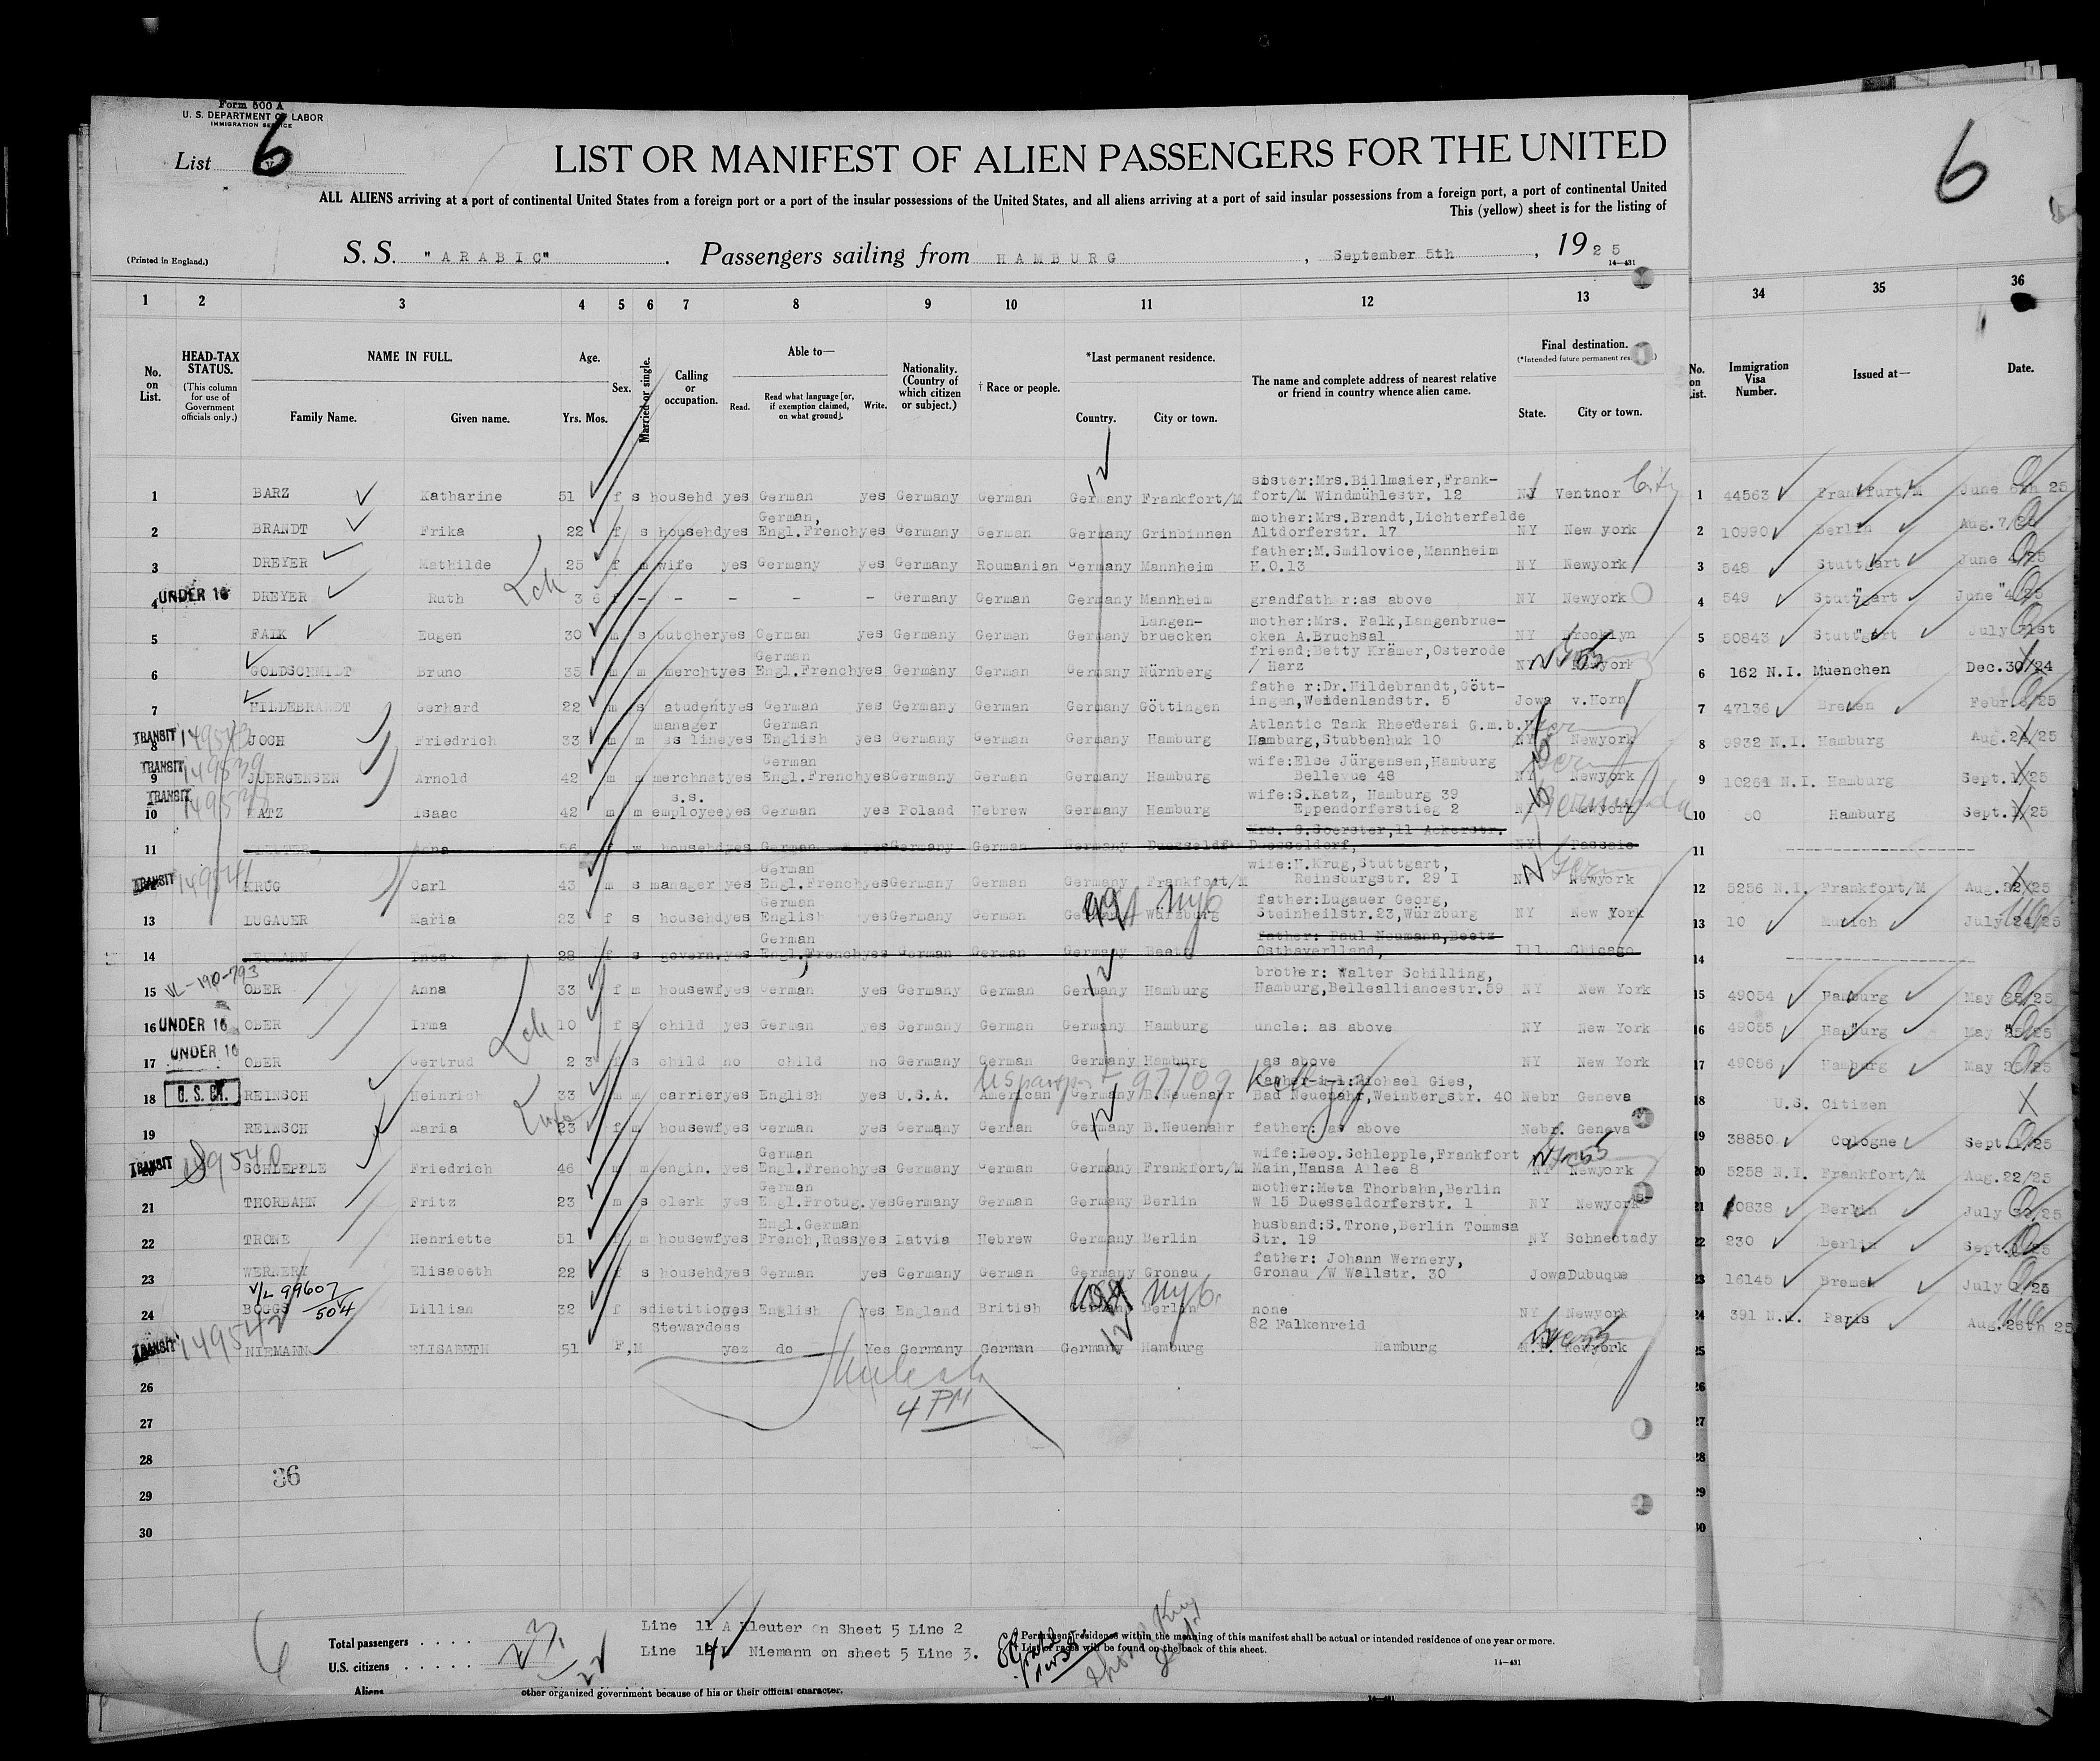 Form 500 A
U. S. DEPARTMENT OF LABOR
IMMIGRATION SERVICE
List 6
6
LIST OR MANIFEST OF ALIEN PASSENGERS FOR THE UNITED
ALL ALIENS arriving at a port of continental United States from a foreign port or a port of the insular possessions of the United States, and all aliens arriving at a port of said insular possessions from a foreign port, a port of continental United
This (yellow) sheet is for the listing of
(Printed in England.) S. S. "ARABIC" . Passengers sailing from HAMBURG , September 5th , 1925
14—431
1 2 3 4 5 6 7 8 9 10 11 12 13 34 35 36
No. on List. HEAD-TAX STATUS. (This column for use of Government officials only.) NAME IN FULL. Family Name. Given name. Age. Yrs. Mos. Sex. Married or single. Calling or occupation. Able to— Read. Read what language [or, if exemption claimed, on what ground]. Write. Nationality. (Country of which citizen or subject.) † Race or people. *Last permanent residence. Country. City or town. The name and complete address of nearest relative or friend in country whence alien came. Final destination. (*Intended future permanent State. City or town. No. on List. Immigration Visa Number. Issued at— Date.
1 BARZ Katharine 51 f s househd yes German yes Germany German Germany Frankfort/M sister:Mrs.Billmaier,Frank-fort/M Windmühlestr. 12 NJ Ventnor City 1 44563 Frankfurt/M June 25
2 BRANDT Frika 22 f s househd yes German, Engl.French yes Germany German Germany Grinbinnen mother:Mrs.Brandt,Lichterfelde Altdorferstr. 17 NY New york 2 10990 Berlin Aug.7
3 DREYER Mathilde 25 f m wife yes Germany yes Germany Roumanian Germany Mannheim father:M.Smilovice,Mannheim H.0.13 NY Newyork 3 548 Stuttgart June 25
4 UNDER 16 DREYER Ruth 3 6 - - - - - Germany German Germany Mannheim grandfather:as above NY Newyork 4 549 Stuttgart June 4 25
5 FALK Eugen 30 m s butcher yes German yes Germany German Germany Langen-bruecken mother:Mrs. Falk,Langenbrue-cken A.Bruchsal NY Brooklyn 5 50843 Stuttgart July 31st
6 GOLDSCHMIDT Bruno 35 m m mercht yes German Engl.French yes Germany German Germany Nürnberg friend:Betty Krämer,Osterode / Harz NY Newyork 6 162 N.I. Muenchen Dec.30/24
7 HILDEBRANDT Gerhard 22 m s student yes German yes Germany German Germany Göttingen father:Dr.Hildebrandt,Gött-ingen,Weidenlandstr. 5 Jowa v.Horn 7 47136 Bremen Febr. 25
TRANSIT 8 JOCH Friedrich 33 m m manager ss line yes German English yes Germany German Germany Hamburg Atlantic Tank Rheederai G.m.b.H. Hamburg,Stubbenhuk 10 NY Newyork 8 9932 N.I. Hamburg Aug.24/25
TRANSIT 149539 9 JUERGENSEN Arnold 42 m m merchnat yes German Engl.French yes Germany German Germany Hamburg wife:Else Jürgensen,Hamburg Bellevue 48 NY Newyork 9 10261 N.I. Hamburg Sept.1/25
TRANSIT 10 KATZ Isaac 42 m m s.s. employee yes German yes Poland Hebrew Germany Hamburg wife:S.Katz, Hamburg 39 Eppendorferstieg 2 NY Newyork Bermuda 10 50 Hamburg Sept. 25
11 Anna 56 f w househd yes German yes Germany German Germany Duesseldf Mrs. G.Goerster,11 Ackerstr. Duesseldorf, NY Passaic 11 ----------
TRANSIT 149541 KRUG Carl 43 m s manager yes German Engl.French yes Germany German Germany Frankfort/M wife:H.Krug,Stuttgart, Reinsburgstr. 29 I NY Newyork 12 5256 N.I. Frankfort/M Aug.22/25
13 LUGAUER Maria 23 f s househd yes German English yes Germany German Germany Würzburg father:Lugauer Georg, Steinheilstr.23,Würzburg NY New York 13 10 Munich July 24/25
14 NEUMANN Inez 28 f s govern. yes German Engl.French yes German German Germany Beetz father: Paul Neumann,Beetz Osthavelland, Ill Chicago 14 ----------
15 OBER Anna 33 f m housewf yes German yes Germany German Germany Hamburg brother: Walter Schilling, Hamburg,Bellealliancestr.59 NY New York 15 49054 Hamburg May 25/25
16 UNDER 16 OBER Irma 10 f s child yes German yes Germany German Germany Hamburg uncle: as above NY New York 16 49055 Hamburg May 25/25
17 UNDER 16 OBER Gertrud 2 3 f s child no child no Germany German Germany Hamburg as above NY New York 17 49056 Hamburg May 25/25
US passport 97709
18 U. S. CIT. REINSCH Heinrich 33 m m carrier yes English yes U.S.A. American Germany B.Neuenahr father-i-l:Michael Gies, Bad Neuenahr,Weinbergstr. 40 Nebr Geneva 18 U.S. Citizen
19 REINSCH Maria 23 f m housewf yes German yes Germany German Germany B.Neuenahr father: as above Nebr. Geneva 19 38850 Cologne Sept.1/25
TRANSIT 149540 SCHLEPPLE Friedrich 46 m m engin. yes German Engl.French yes Germany German Germany Frankfort/M wife:Leop.Schlepple,Frankfort Main,Hansa Allee 8 NY Newyork 20 5258 N.I. Frankfort/M Aug.22/25
21 THORBAHN Fritz 23 m s clerk yes German Engl.Protug. yes Germany German Germany Berlin mother:Meta Thorbahn,Berlin W 15 Duesseldorferstr. 1 NY Newyork 21 20838 Berlin July 25
22 TRONE Henriette 51 f m housewf yes Engl.German French,Russ yes Latvia Hebrew Germany Berlin husband:S.Trone,Berlin Tommsa Str. 19 NY Schnectady 22 230 Berlin Sept. 25
23 WERNERY Elisabeth 22 f s househd yes German yes Germany German Germany Gronau father: Johann Wernery, Gronau /W Wallstr. 30 Jowa Dubuque 23 16145 Bremen July 1/25
V/L 99607/504
24 BOGGS Lillian 32 f s dietition yes English yes England British Germany Berlin none NY Newyork 24 391 N.I. Paris Aug.26th 25
TRANSIT 149542 NIEMANN ELISABETH 51 F,M Stewardess yes do Yes Germany German Germany Hamburg 82 Falkenreid Hamburg N.Y. Newyork 25
26 26
27 4 PM 27
28 28
36
29 29
30 30
Line 11 A Kleuter on Sheet 5 Line 2
Line 14 Niemann on sheet 5 Line 3.
Total passengers
U.S. citizens
Aliens
Permanent residence within the meaning of this manifest shall be actual or intended residence of one year or more.
List of races will be found on the back of this sheet.
14—431
other organized government because of his or their official character.
14—431